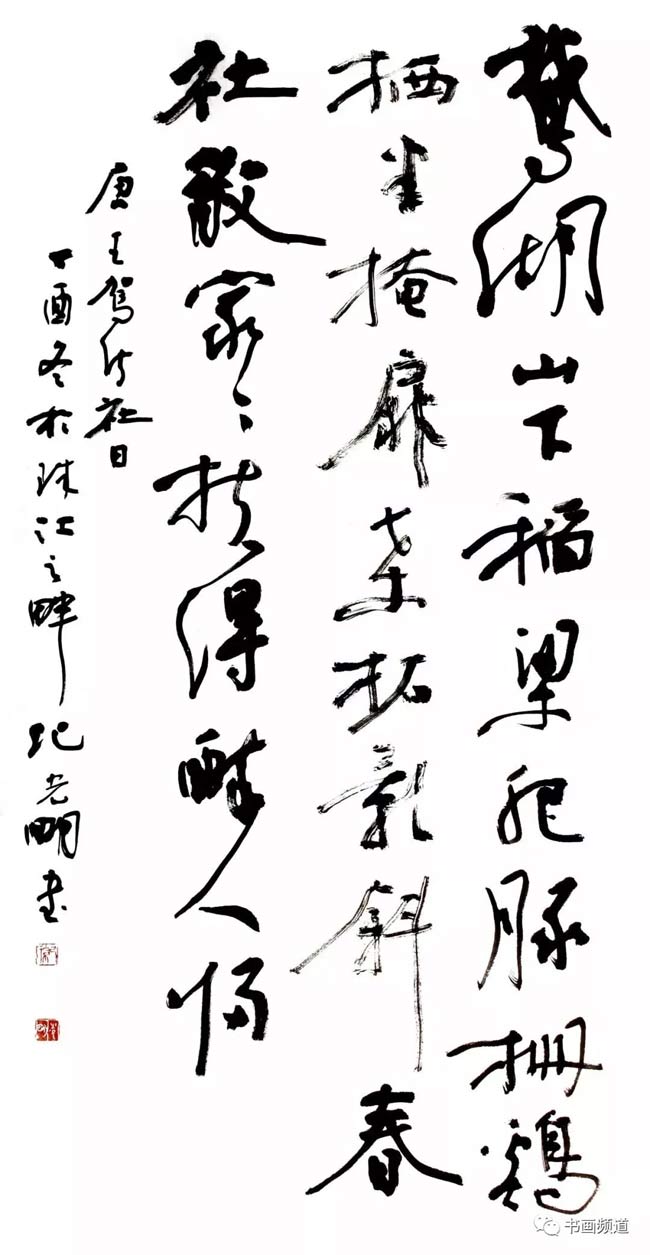 鵞湖山下稻梁肥豚栅鷄
栖半掩扉桑柘影斜春
社散家〻扶得醉人归
唐王驾诗社日
丁酉冬於珠江之畔 纪光明书
书画频道